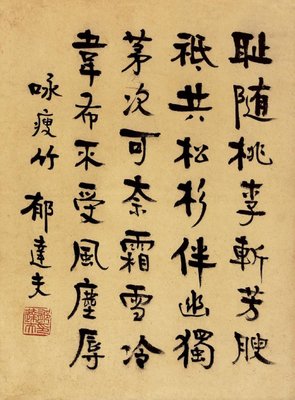 耻随桃李斬芳腴
祗共松杉伴幽獨
茅次可奈霜雪冷
韋布受風塵辱
咏瘦竹 郁達夫